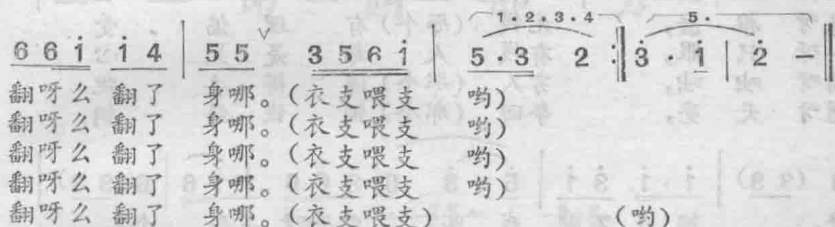 1·2·3·4 5.
6 6 i̇ i̇ 4 | 5 5 ∨ 3 5 6 i̇ | 5·3 2 :‖ 3̇·i̇ | 2̇ – ‖
翻呀么 翻了 身哪。(衣支喂支 哟)
翻呀么 翻了 身哪。(衣支喂支 哟)
翻呀么 翻了 身哪。(衣支喂支 哟)
翻呀么 翻了 身哪。(衣支喂支 哟)
翻呀么 翻了 身哪。(衣支喂支) (哟)